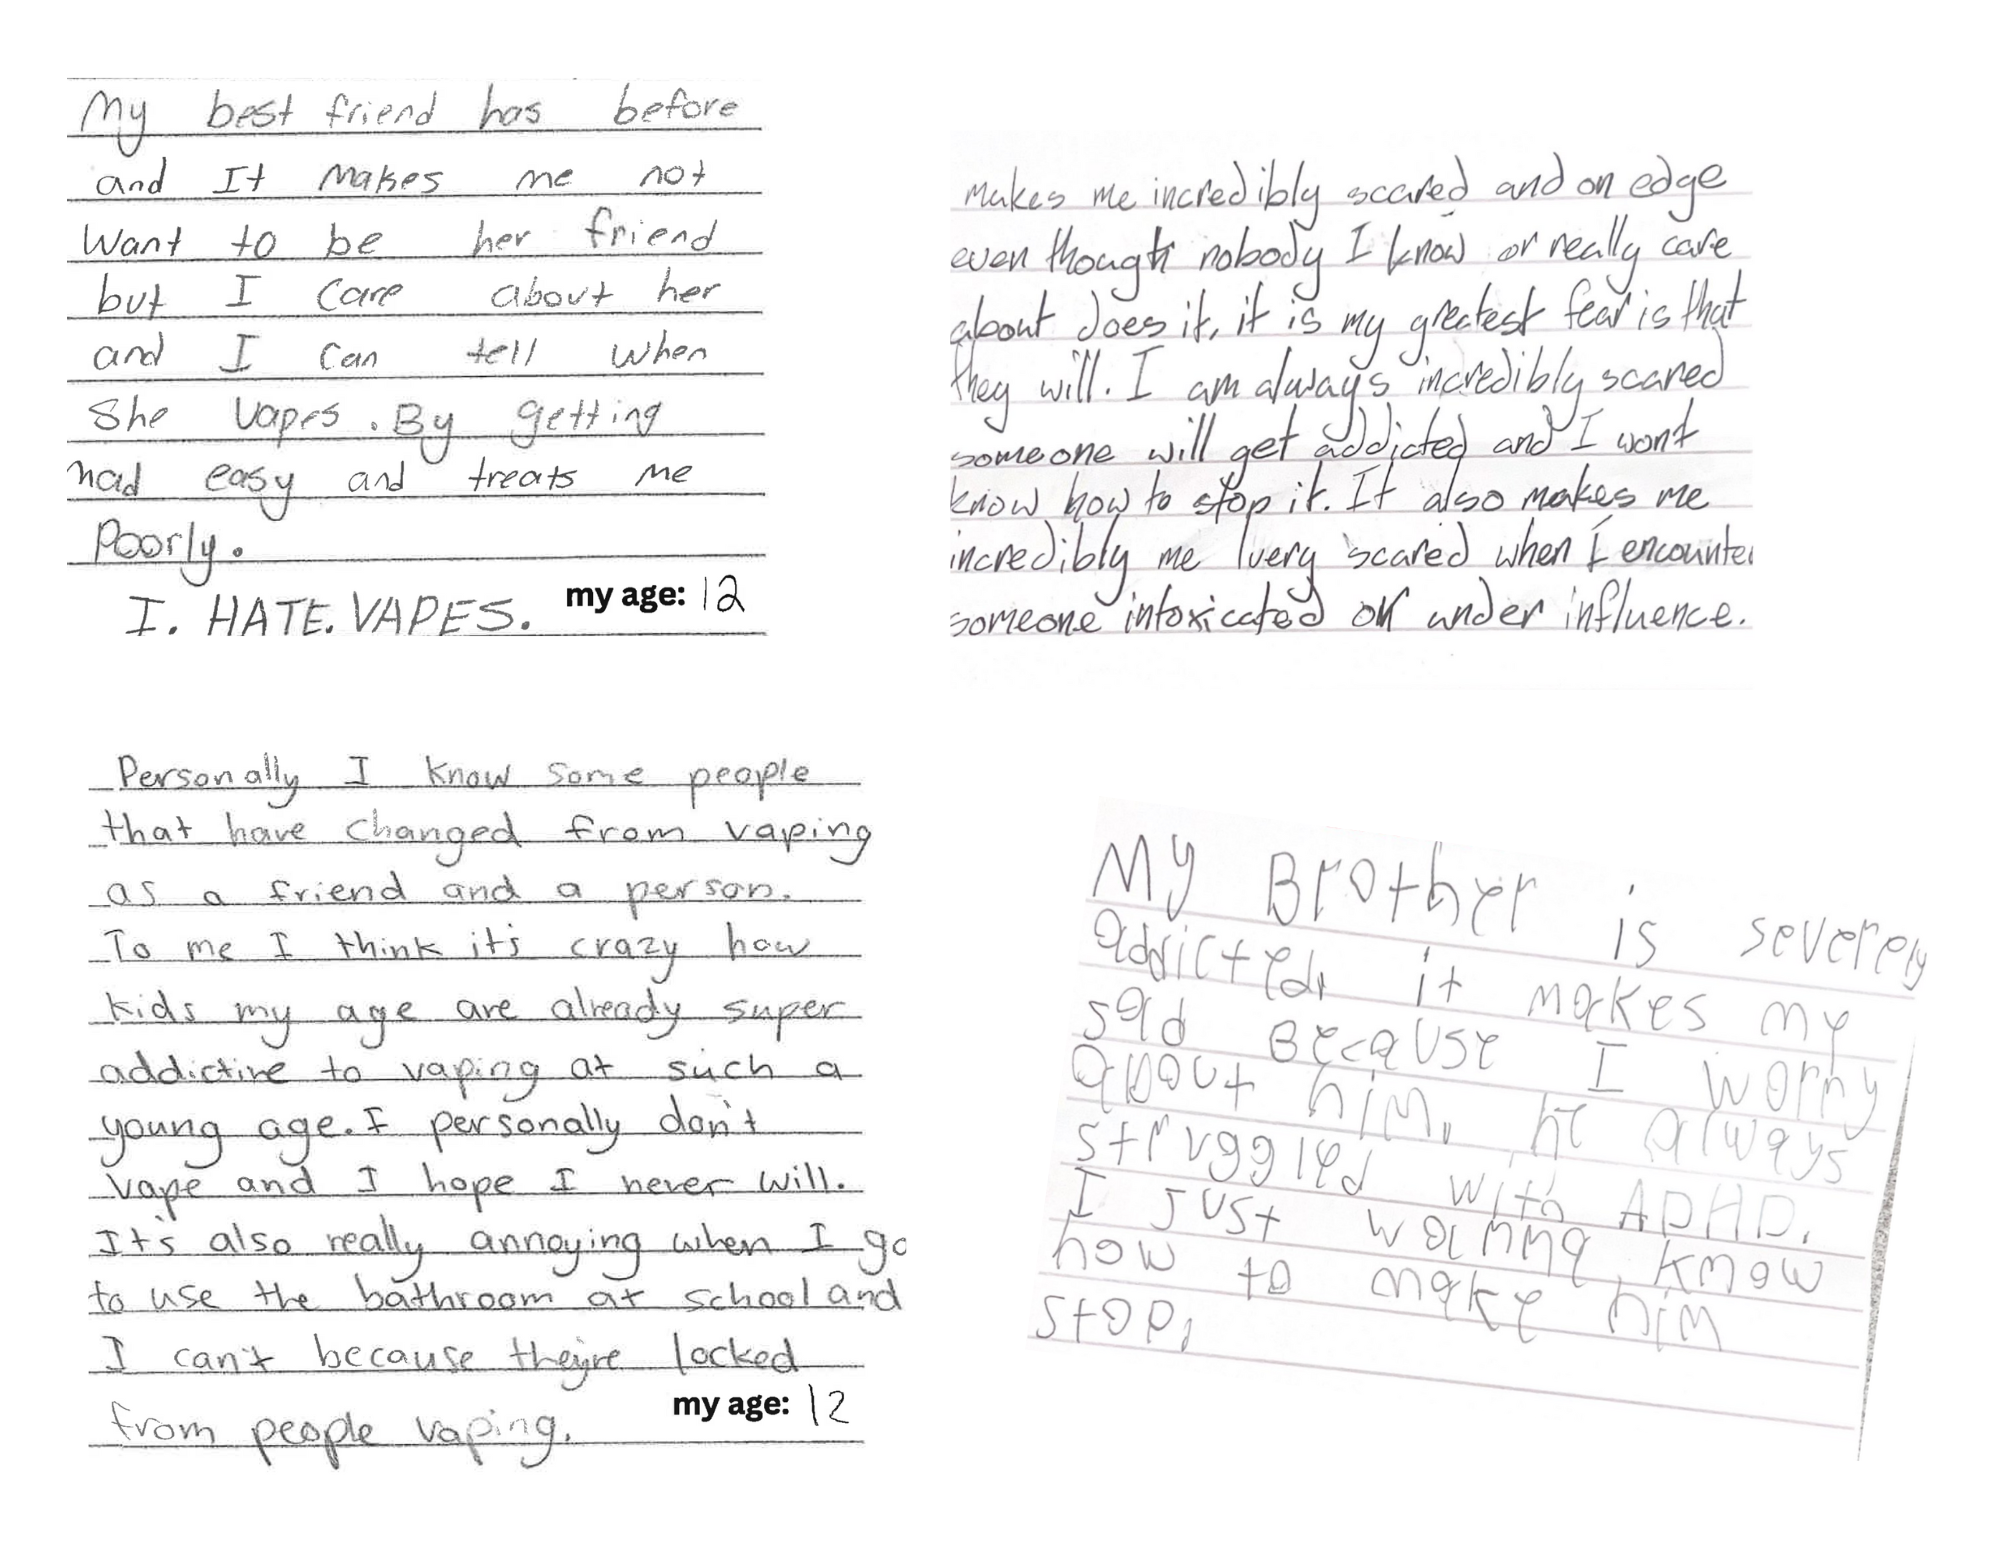 My best friend has before
and It makes me not
Want to be her friend
but I care about her
and I can tell when
She vapes. By getting
mad easy and treats me
Poorly.
I. HATE. VAPES. my age: 12
makes me incredibly scared and on edge
even though nobody I know or really care
about does it, it is my greatest fear is that
they will. I am always incredibly scared
someone will get addicted and I wont
know how to stop it. It also makes me
incredibly me very scared when I encounter
someone intoxicated or under influence.
Personally I know some people
that have changed from vaping
as a friend and a person.
To me I think it's crazy how
kids my age are already super
addictive to vaping at such a
young age. I personally don't
vape and I hope I never will.
It's also really annoying when I go
to use the bathroom at school and
I can't because they're locked
from people vaping. my age: 12
My Brother is severely
addicted, it makes my
sad Because I worry
about him, he always
struggled with ADHD.
I just wanna know
how to make him
stop,